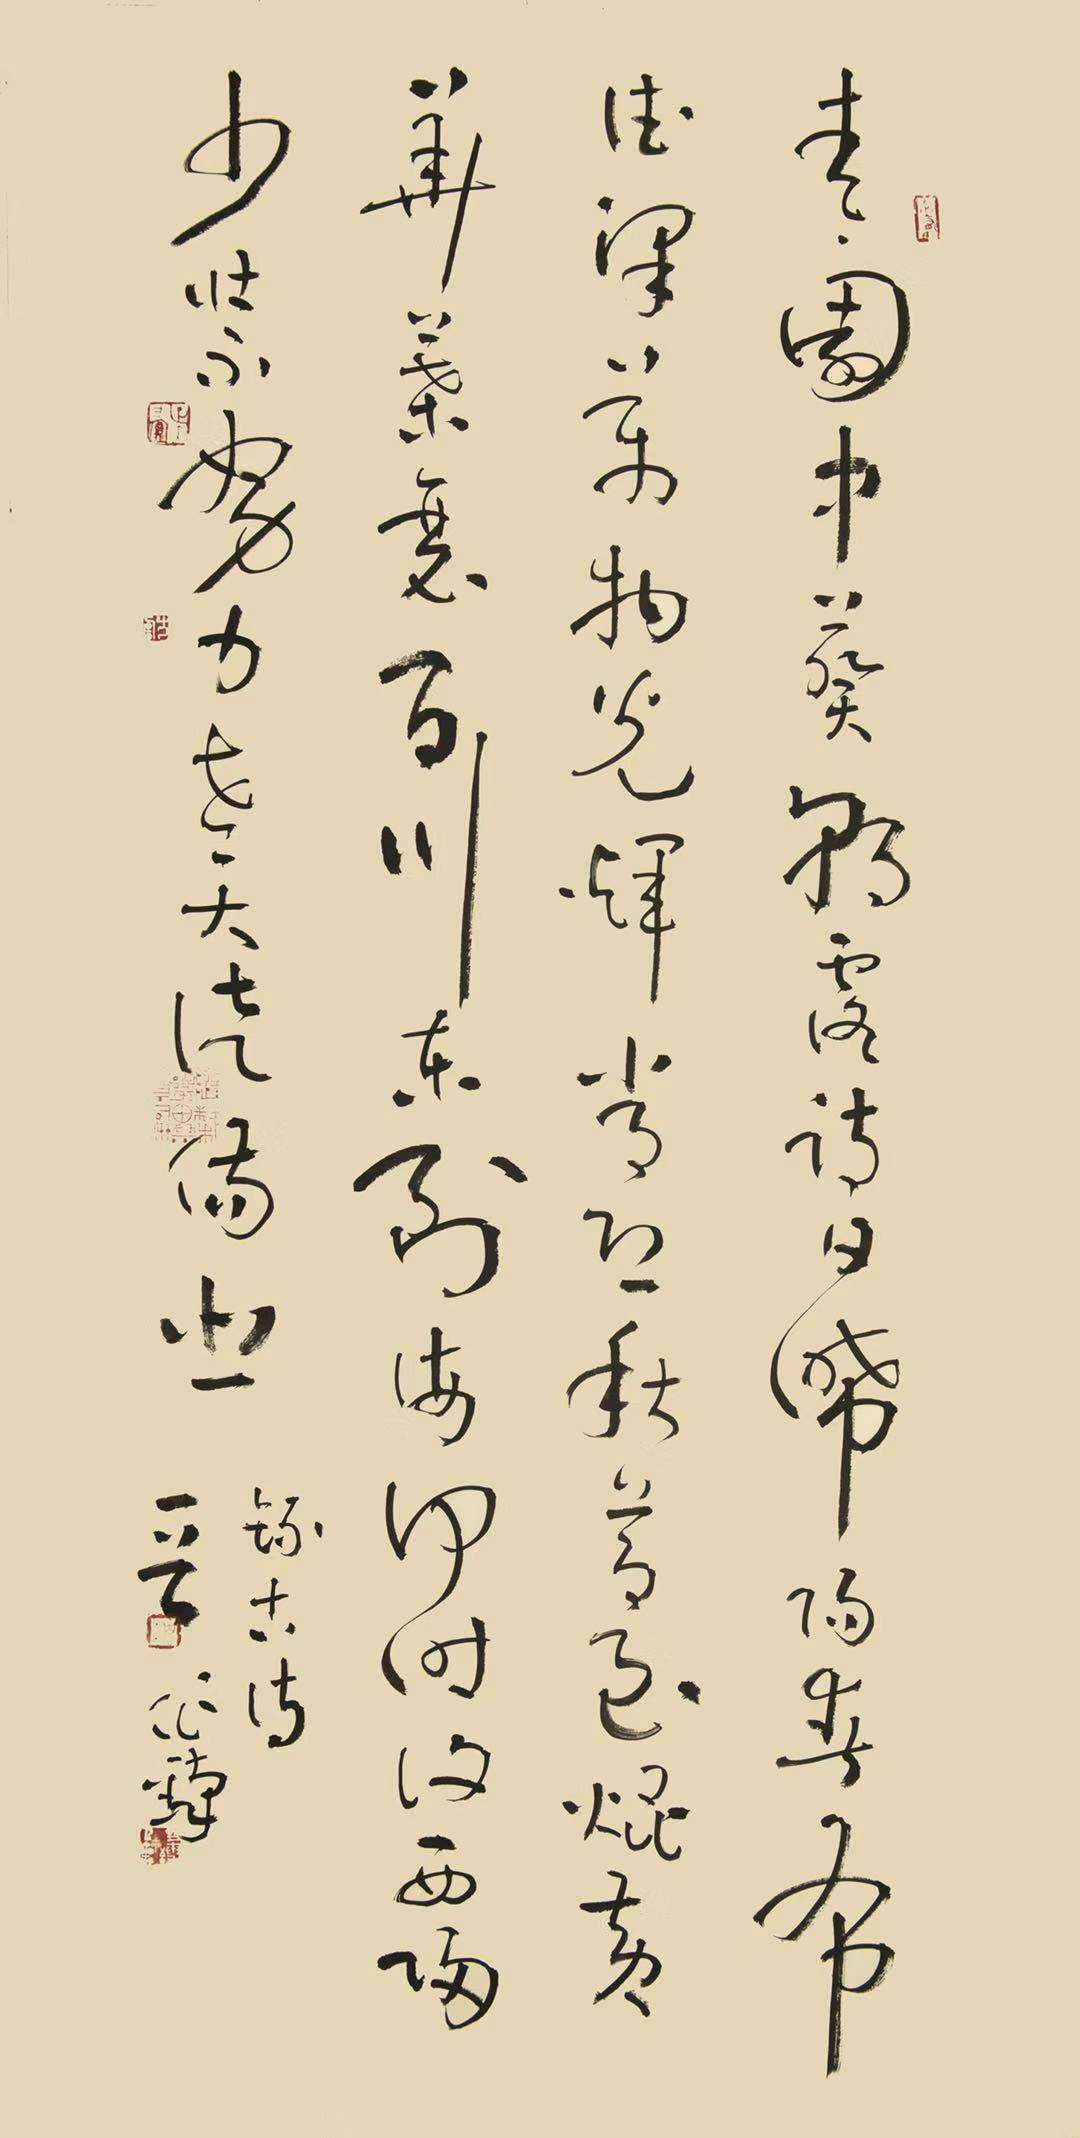 青青園中葵朝露待日晞陽春布
德澤萬物光輝常恐秋節至焜黃
華葉衰百川東到海何時復西歸
少壯不努力老大徒傷悲
錄古詩